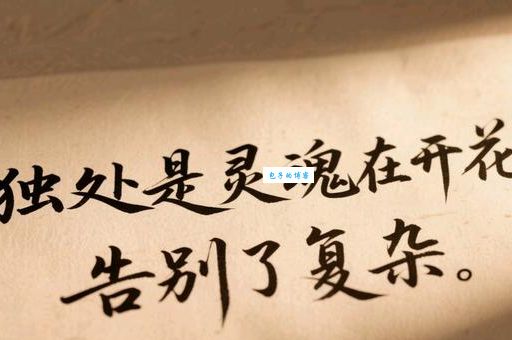 独处是灵魂在开花
包子的博客
告别了复杂。